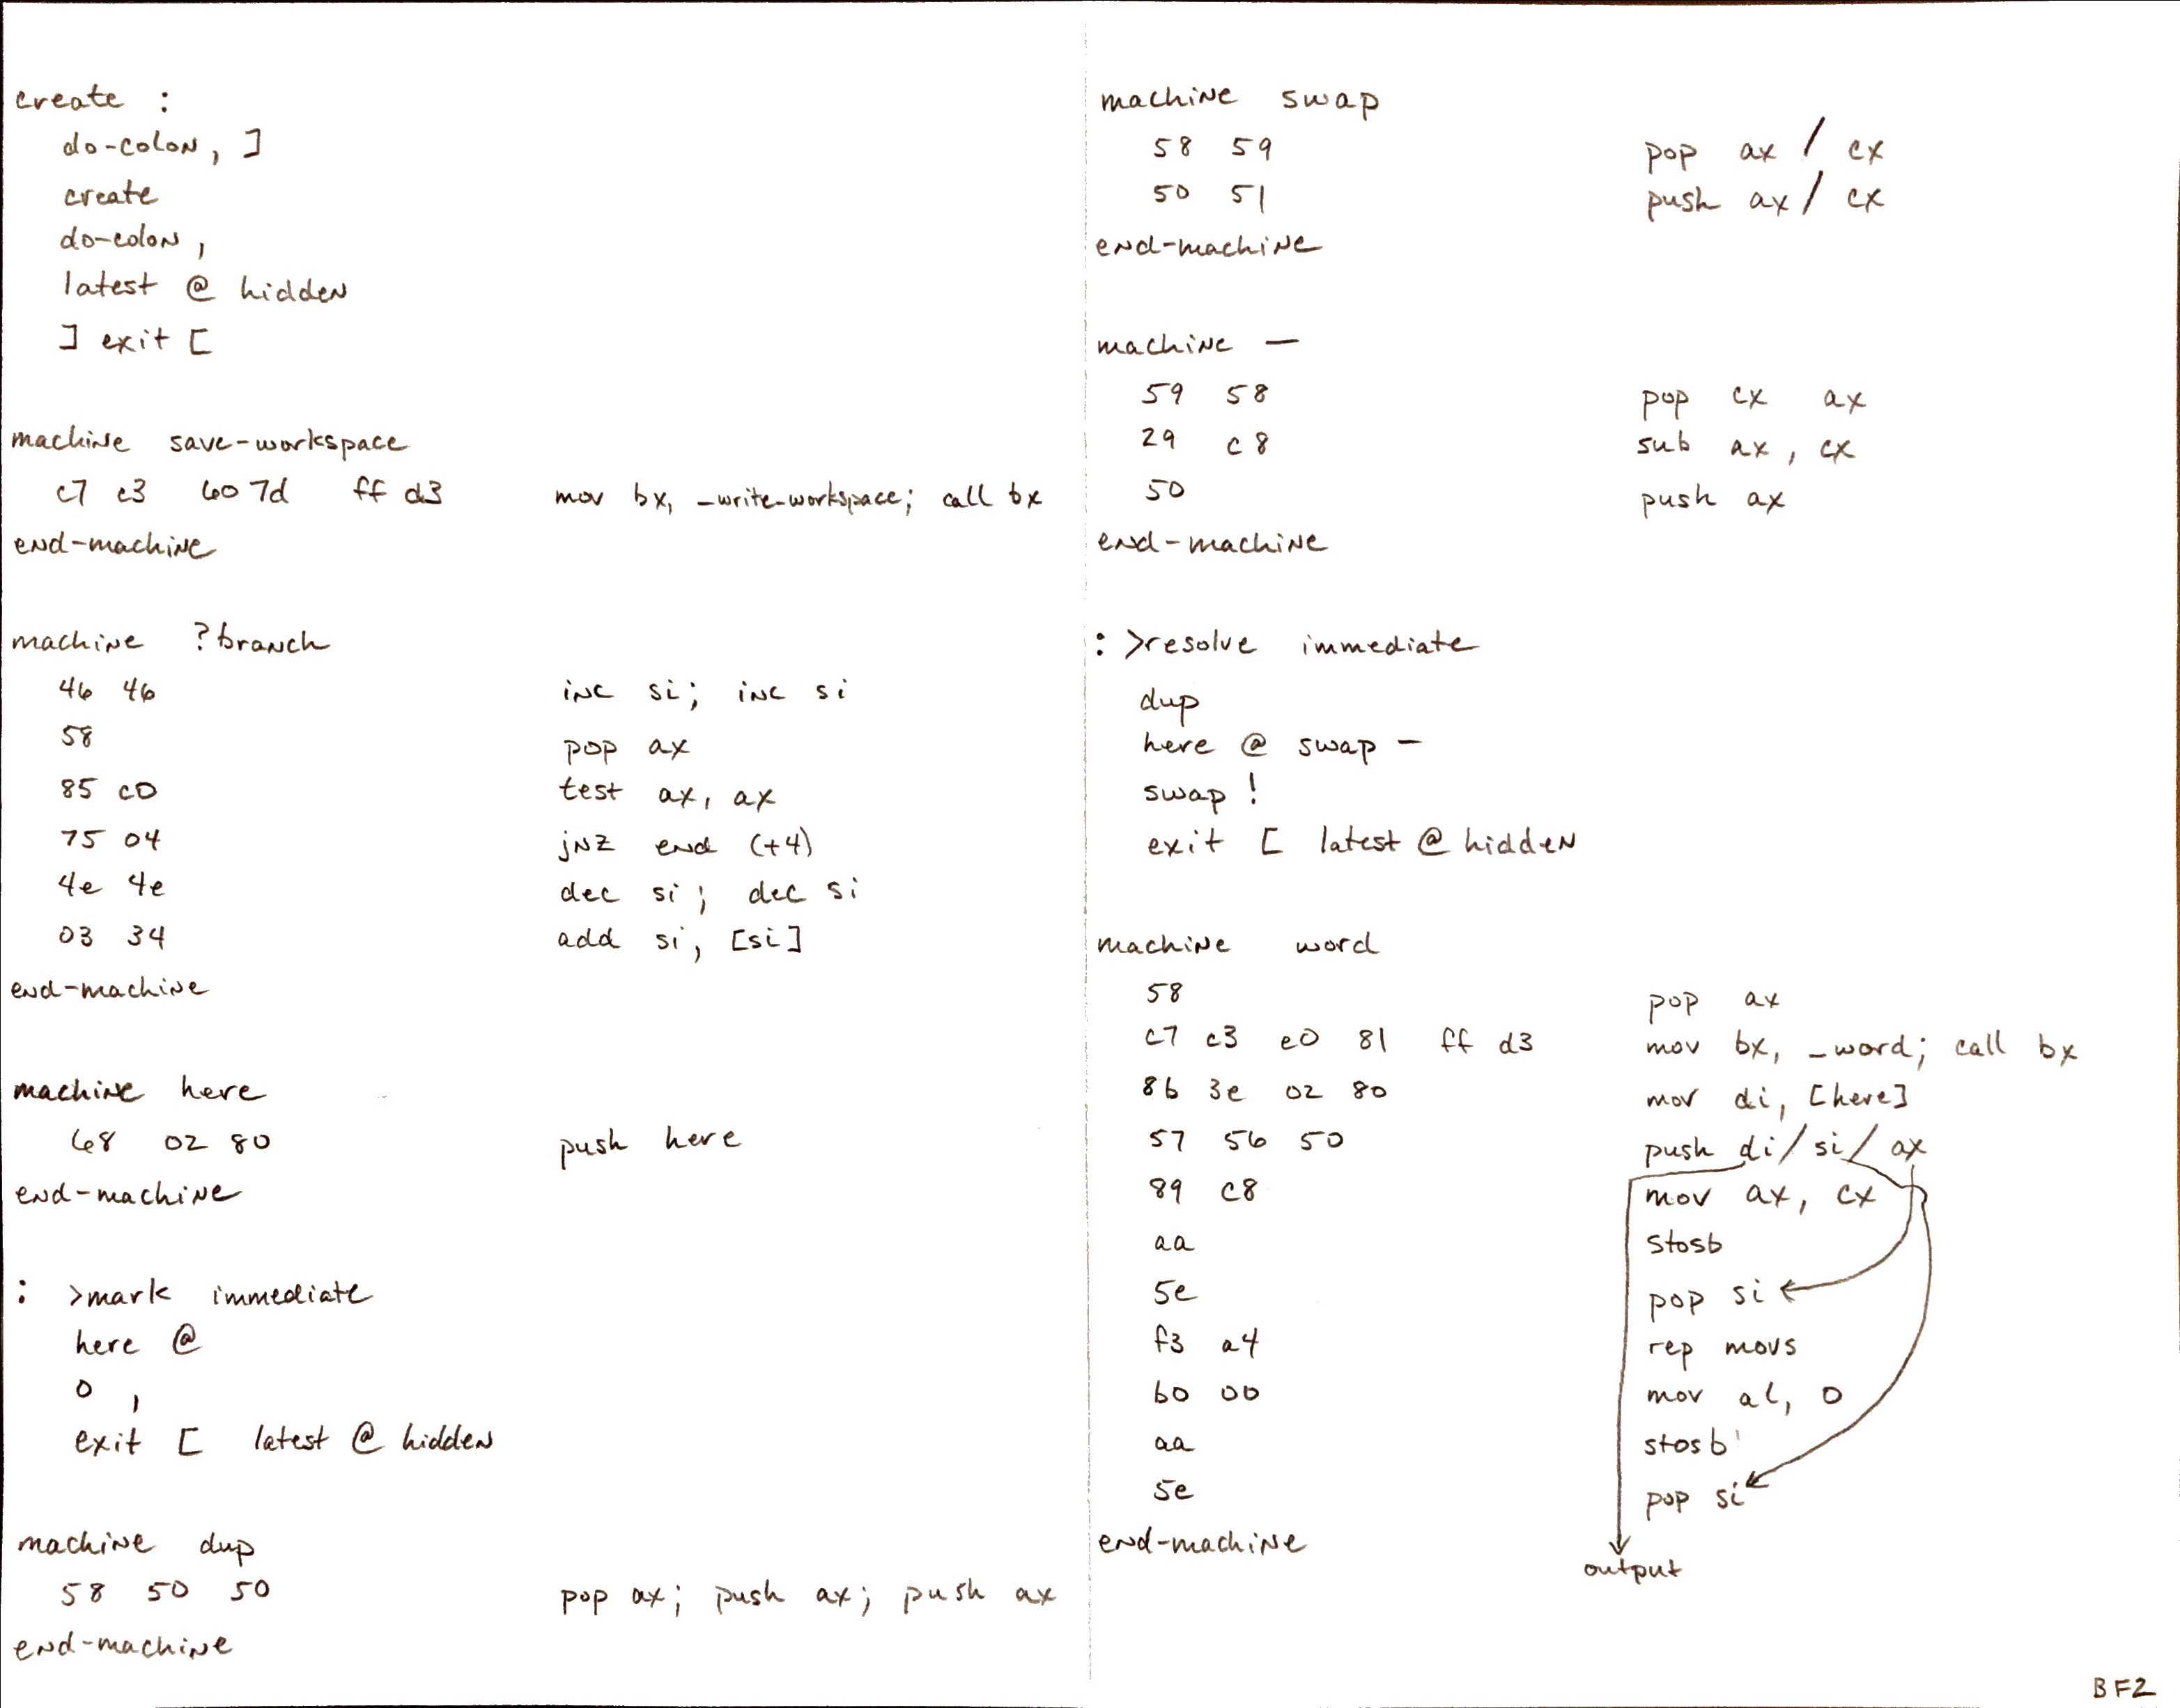 create :
do-colon, ]
create
do-colon ,
latest @ hidden
] exit [
machine save-workspace
c7 c3 60 7d ff d3 mov bx, _write-workspace; call bx
end-machine
machine ?branch
46 46 inc si; inc si
58 pop ax
85 c0 test ax, ax
75 04 jnz end (+4)
4e 4e dec si; dec si
03 34 add si, [si]
end-machine
machine here
68 02 80 push here
end-machine
: >mark immediate
here @
0 ,
exit [ latest @ hidden
machine dup
58 50 50 pop ax; push ax; push ax
end-machine
machine swap
58 59 pop ax / cx
50 51 push ax / cx
end-machine
machine -
59 58 pop cx ax
29 c8 sub ax, cx
50 push ax
end-machine
: >resolve immediate
dup
here @ swap -
swap !
exit [ latest @ hidden
machine word
58 pop ax
c7 c3 e0 81 ff d3 mov bx, _word; call bx
8b 3e 02 80 mov di, [here]
57 56 50 push di/si/ax
89 c8 mov ax, cx
aa stosb
5e pop si
f3 a4 rep movs
b0 00 mov al, 0
aa stosb
5e pop si
end-machine
output
BF2